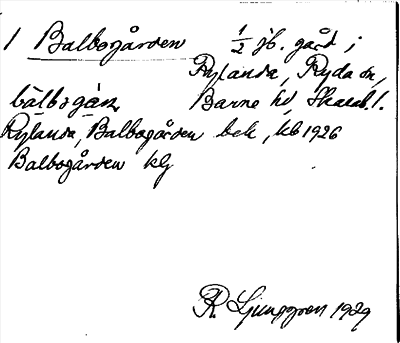 1 Balbogården ½ jb. gård i
Rylanda, Ryda sn,
bälbogán, Barne hd, Skarab. l.
Rylanda, Balbogården bek, kb 1926
Balbogården kg
R. Ljunggren 1929